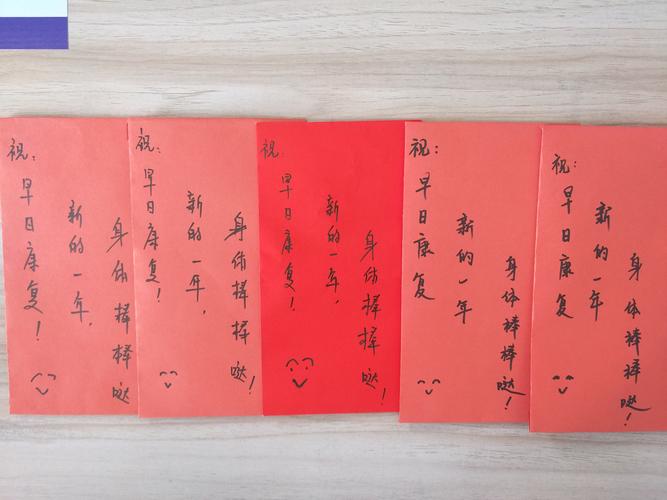 祝:
早日康复!
新的一年,
身体棒棒哒
祝:
早日康复!
新的一年,
身体棒棒哒!
祝:
早日康复!
新的一年,
身体棒棒哒!
祝:
早日康复
新的一年
身体棒棒哒!
祝:
早日康复
新的一年
身体棒棒哒!